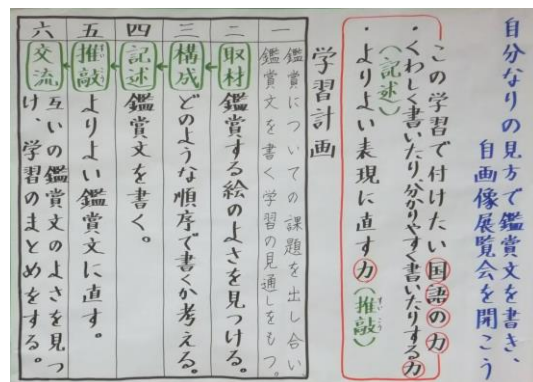 自分なりの見方で鑑賞文を書き、
自画像展覧会を開こう
この学習で付けたい国語の力
・くわしく書いたり、分かりやすく書いたりする力
(記述)
・よりよい表現に直す力(推敲)
すいこう
学習計画
一
鑑賞についての課題を出し合い
鑑賞文を書く学習の見通しをもつ。
二
取材 鑑賞する絵のよさを見つける。
三
構成 どのような順序で書くか考える。
四
記述 鑑賞文を書く。
五
推敲 よりよい鑑賞文に直す。
すいこう
六
交流 互いの鑑賞文のよさを見つ
け、学習のまとめをする。